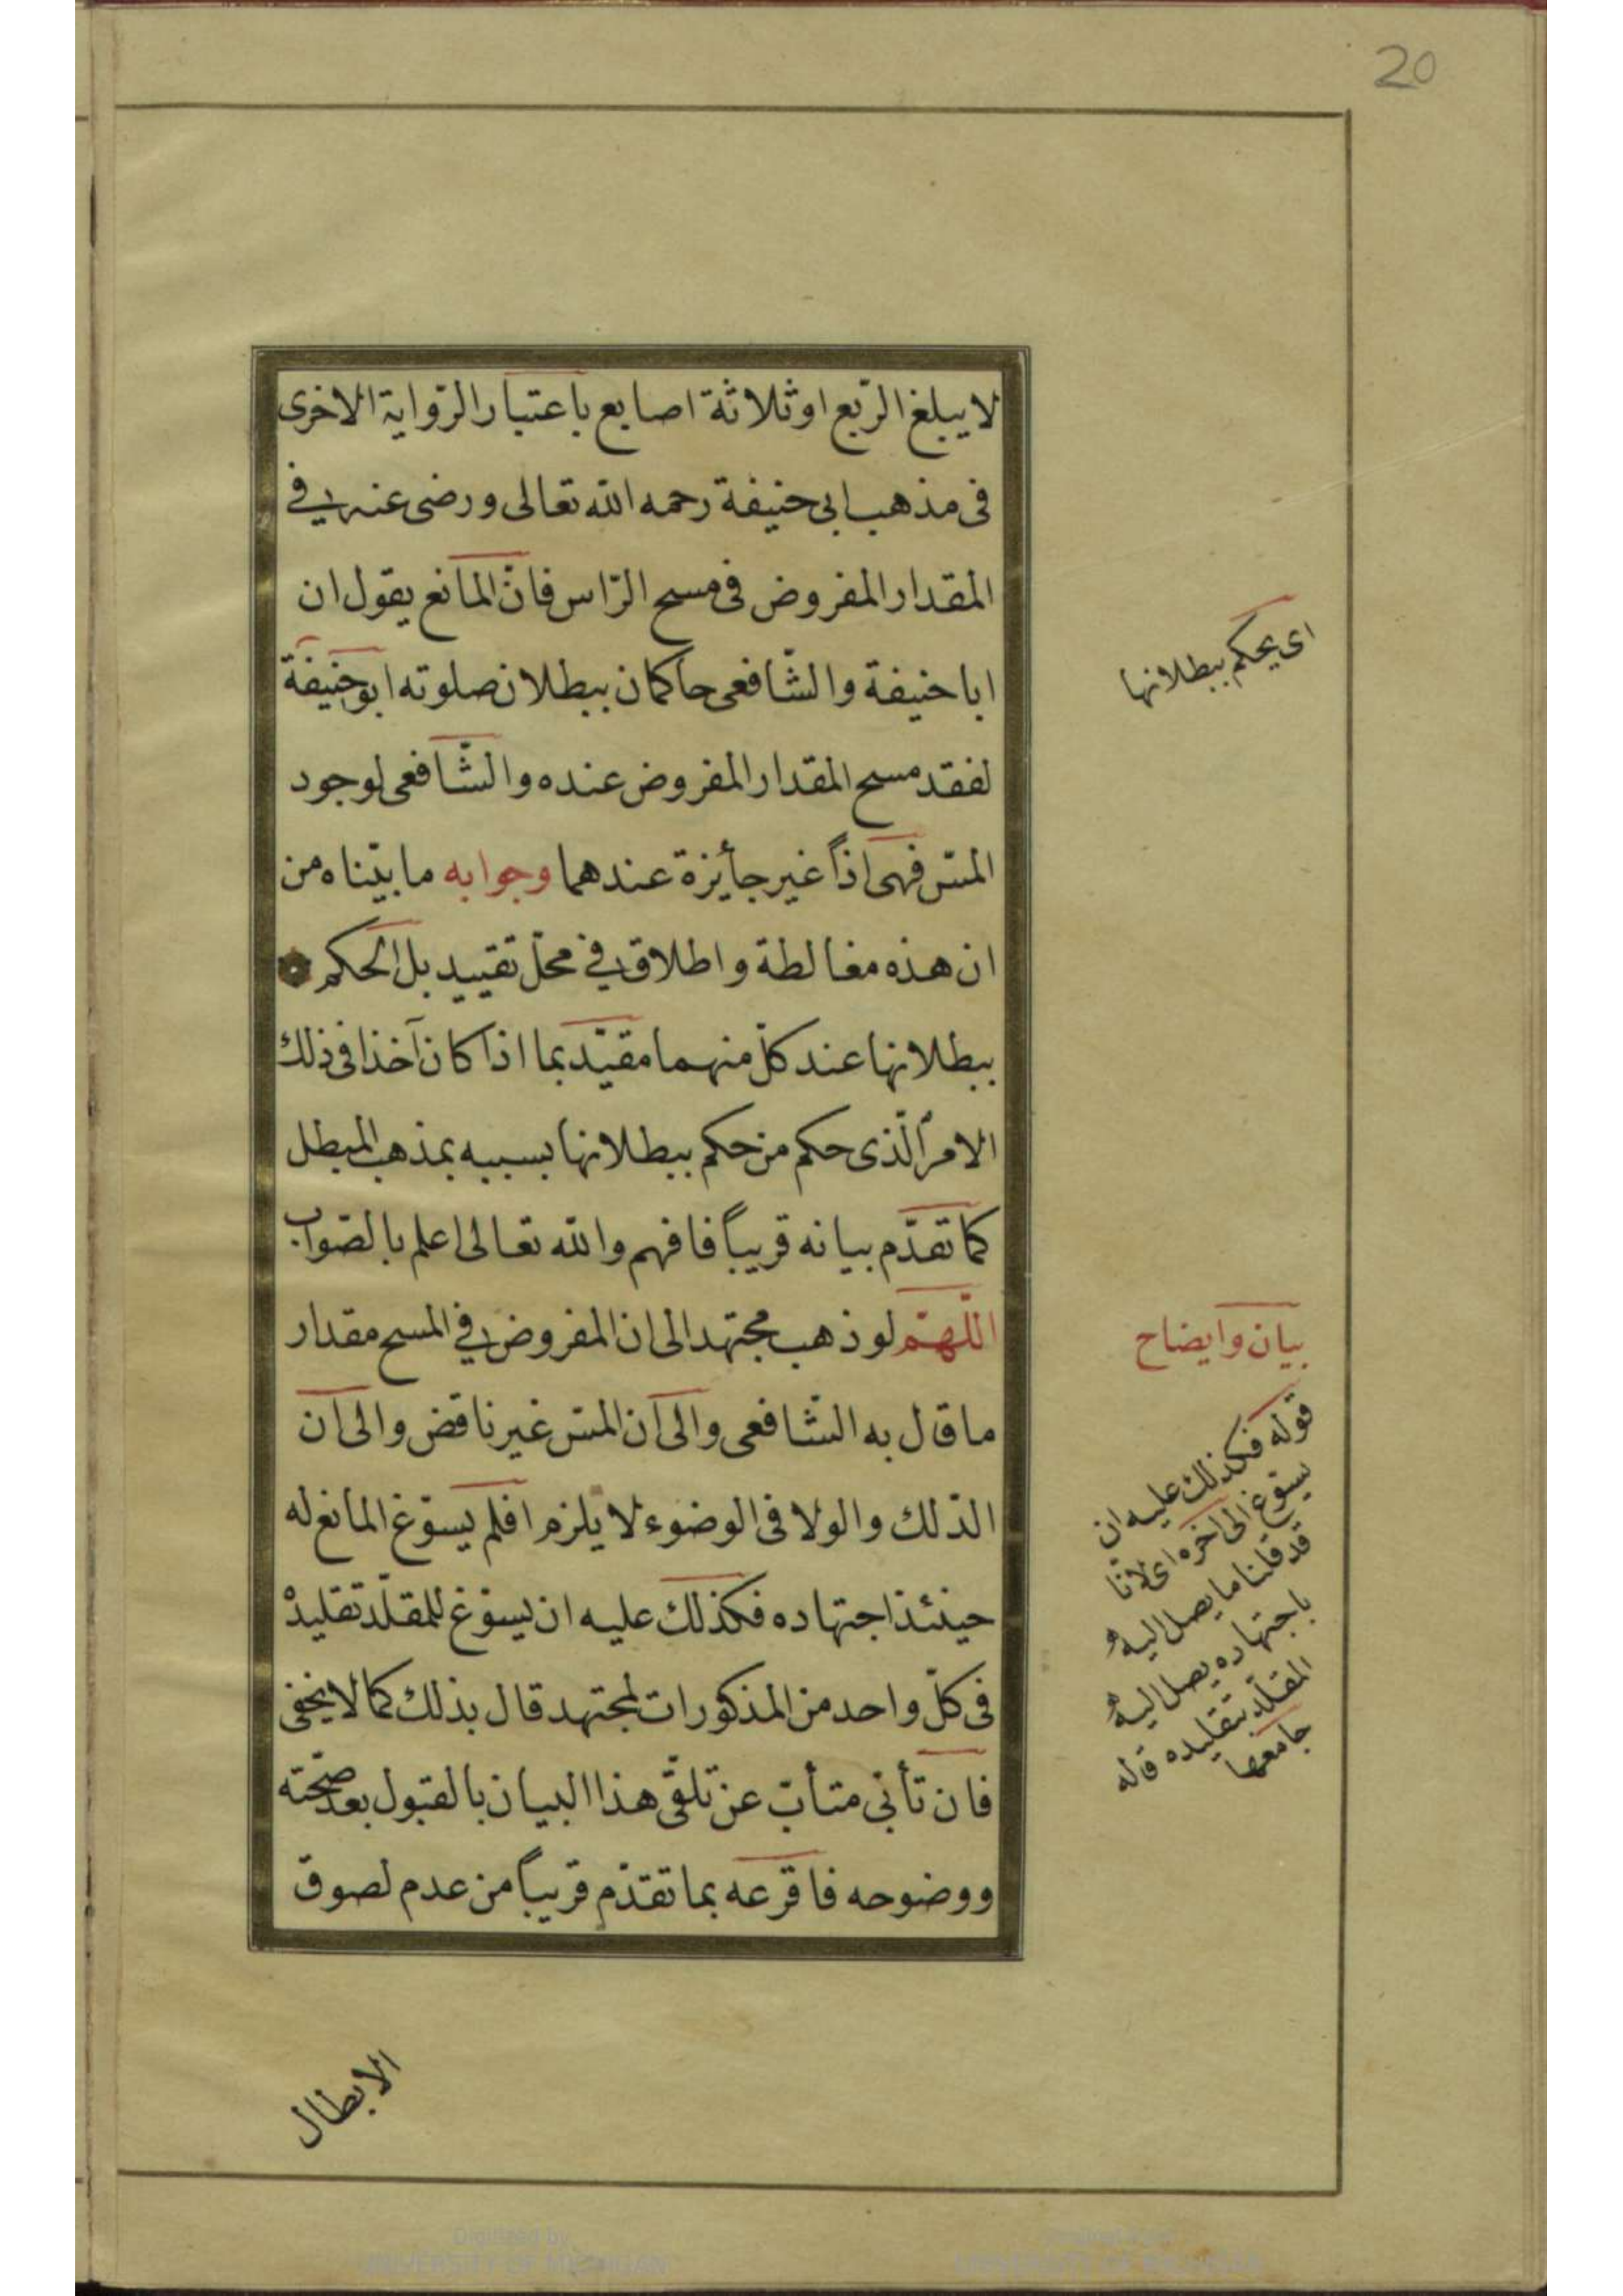 20
لا يبلغ الرّبع او ثلاثة اصابع باعتبار الرّواية الاخرى
فى مذهب ابى حنيفة رحمه الله تعالى ورضى عنه في
المقدار المفروض فى مسح الرّاس فانّ المانع يقول ان
ابا حنيفة والشّافعى حاكمان ببطلان صلوته ابو حنيفة
لفقد مسح المقدار المفروض عنده والشّافعى لوجود
المسّ فهى اذاً غير جائزة عندهما وجوابه ما بيّناه من
ان هذه مغالطة واطلاق في محلّ تقييد بل الحكم
ببطلانها عند كلّ منهما مقيّد بما اذا كان آخذا فى ذلك
الامر الّذى حكم من حكم ببطلانها بسببه بمذهب المبطل
كما تقدّم بيانه قريباً فافهم والله تعالى اعلم بالصّواب
اللّهمّ لو ذهب مجتهد الى ان المفروض في المسح مقدار
ما قال به الشّافعى والى ان المسّ غير ناقض والى ان
الدّلك والولا فى الوضوء لا يلزم افلم يسوّغ المانع له
حينئذ اجتهاده فكذلك عليه ان يسوّغ للمقلّد تقليدْ
فى كلّ واحد من المذكورات لمجتهد قال بذلك كما لا يخفى
فان تأبّى متأبّ عن تلقّى هذا البيان بالقبول بعد صحّته
ووضوحه فاقرعه بما تقدّم قريباً من عدم لصوق
الابطال
اى يحكم ببطلانها
بيان وايضاح
قوله فكذلك عليه ان
يسوّغ الى اخره اى لانّا
قد قلنا ما يصل اليه
باجتهاده يصل اليه
المقلّد بتقليده قاله
جامعها